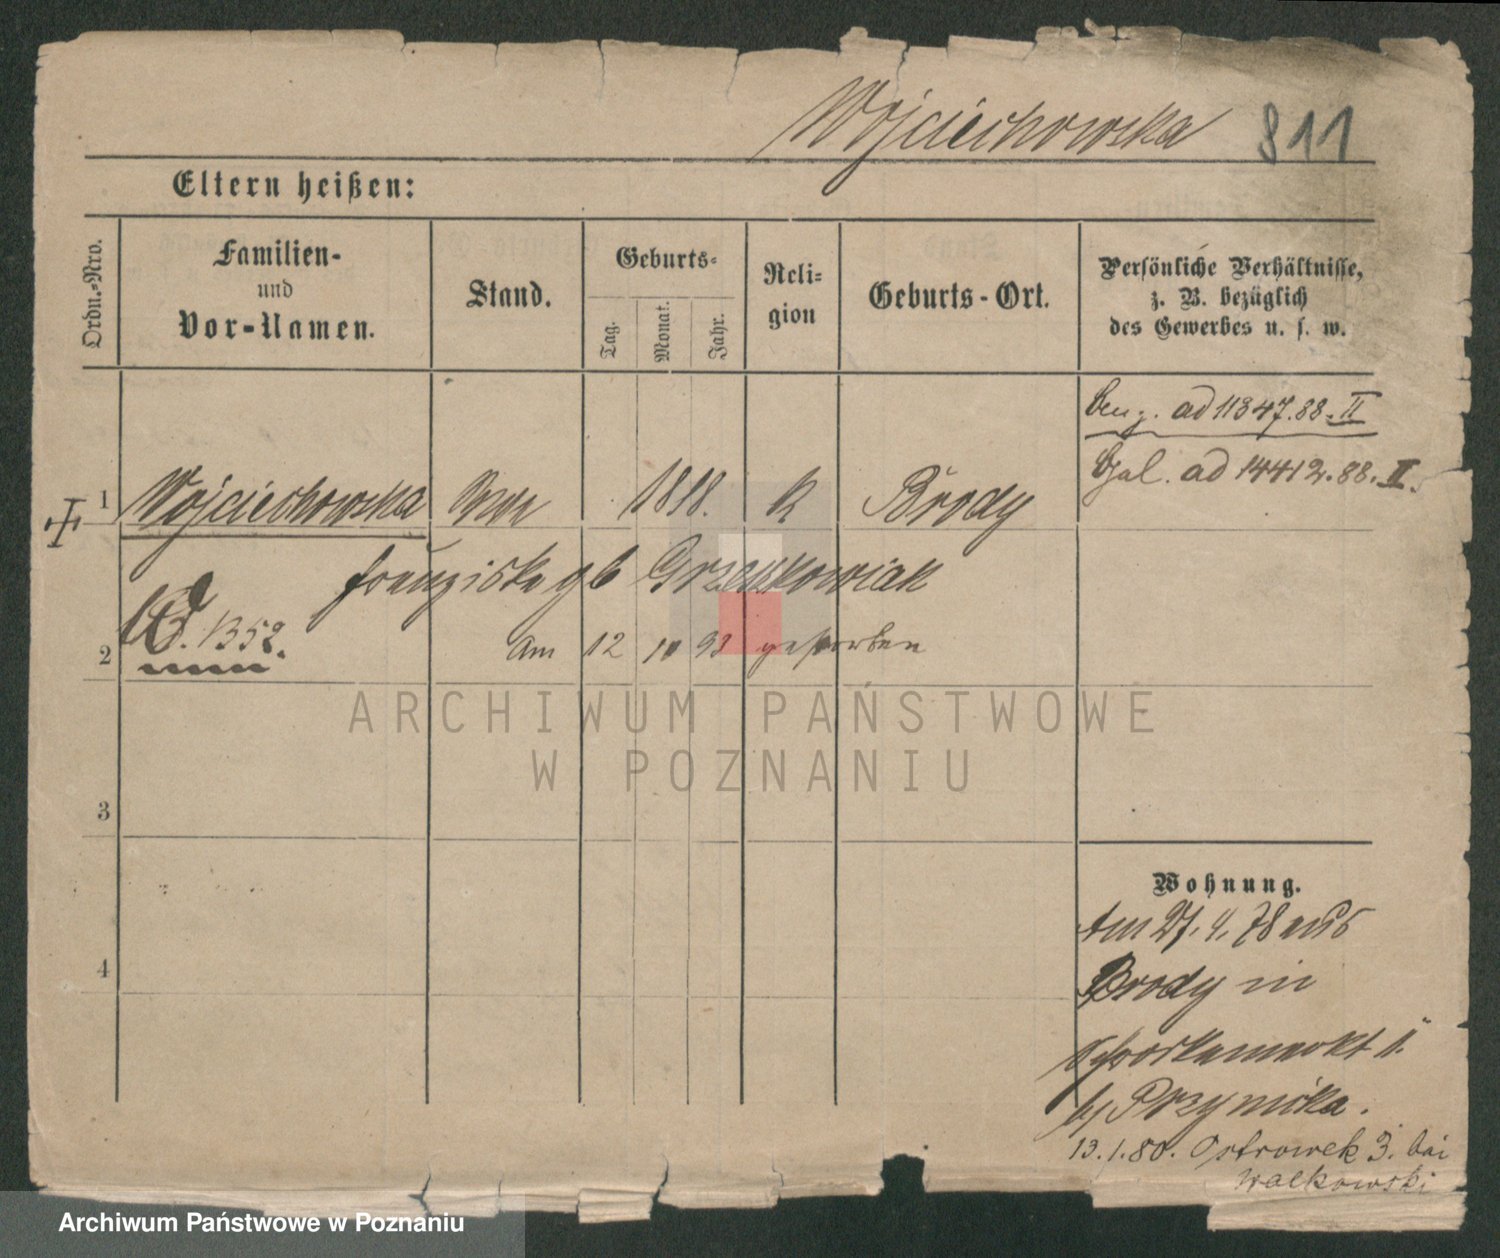 Wojciechowska 811
Eltern heißen:
Ordn.-Nro.
Familien-
und
Vor-Namen.
Stand.
Geburts-
Tag.
Monat.
Jahr.
Reli-
gion
Geburts-Ort.
Persönliche Verhältnisse,
z. B. bezüglich
des Gewerbes u. s. w.
ad 11347.88. II
ad 14412.88. II.
1 Wojciechowska Wwe 1818. K Brody
Franziska gb
B. 1352.
2 am 12 10 93 gestorben
ARCHIWUM PAŃSTWOWE
W POZNANIU
3
Wohnung.
Am 27.4.78 aus
4 Brody in
1.
b/ Przynicka.
13.1.80. Ostrowek 3. bei
Walkowski
Archiwum Państwowe w Poznaniu